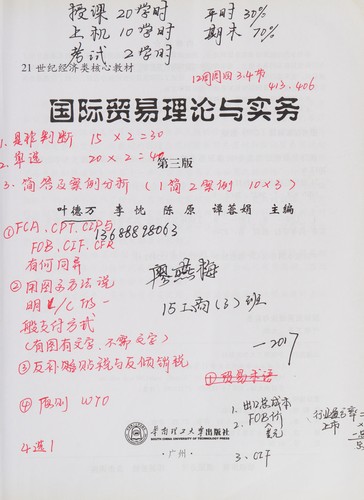 授课 20学时 平时 30%
上机 10学时 期末 70%
考试 2学时
21世纪经济类核心教材
12周周四 3.4节
413.406
国际贸易理论与实务
1.是非判断 15×2=30
2.单选 20×2=40
第三版
3.简答及案例分析(1简2案例 10×3)
叶德万 李忱 陈原 谭蓉娟 主编
①FCA.CPT.CIP与
13688898063
FOB.CIF.CFR
有何同异
廖燕梅
②用图名方法说
明L/C TTS一
15工商(3)班
般支付方式
(有图有文字,不需文字)
—2017
③反补贴税与反倾销税
①贸易术语
④原则 WTO
1.出口总成本
2.FOB价
美元
3.CIF
行业盈亏率=
上市
4选1
华南理工大学出版社
SOUTH CHINA UNIVERSITY OF TECHNOLOGY PRESS
·广州·